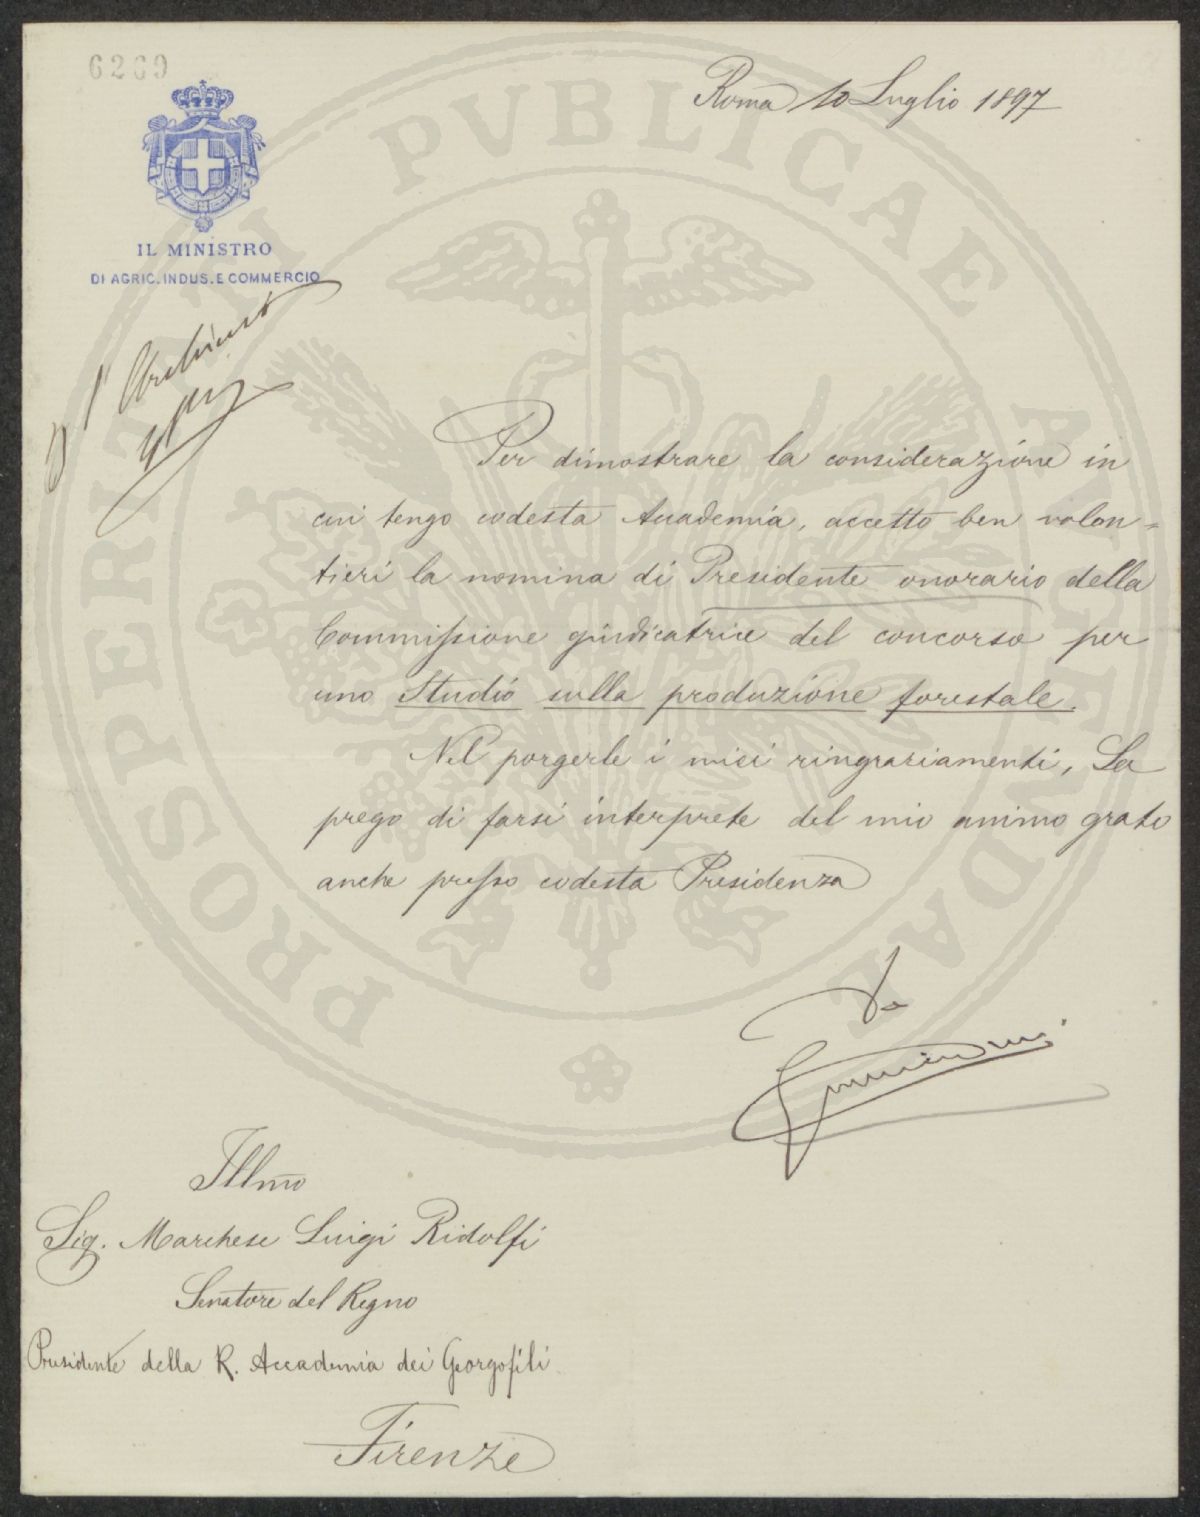 6269
Roma 10 Luglio 1897
IL MINISTRO
DI AGRIC. INDUS. E COMMERCIO
Per dimostrare la considerazione in
cui tengo codesta Accademia, accetto ben volon=
tieri la nomina di Presidente onorario della
Commissione giudicatrice del concorso per
uno Studio sulla produzione forestale.
Nel porgerle i miei ringraziamenti, La
prego di farsi interprete del mio animo grato
anche presso codesta Presidenza
Illmo
Sig. Marchese Luigi Ridolfi
Senatore del Regno
Presidente della R. Accademia dei Georgofili
Firenze
PROSPERITATI PVBLICAE AVGENDAE